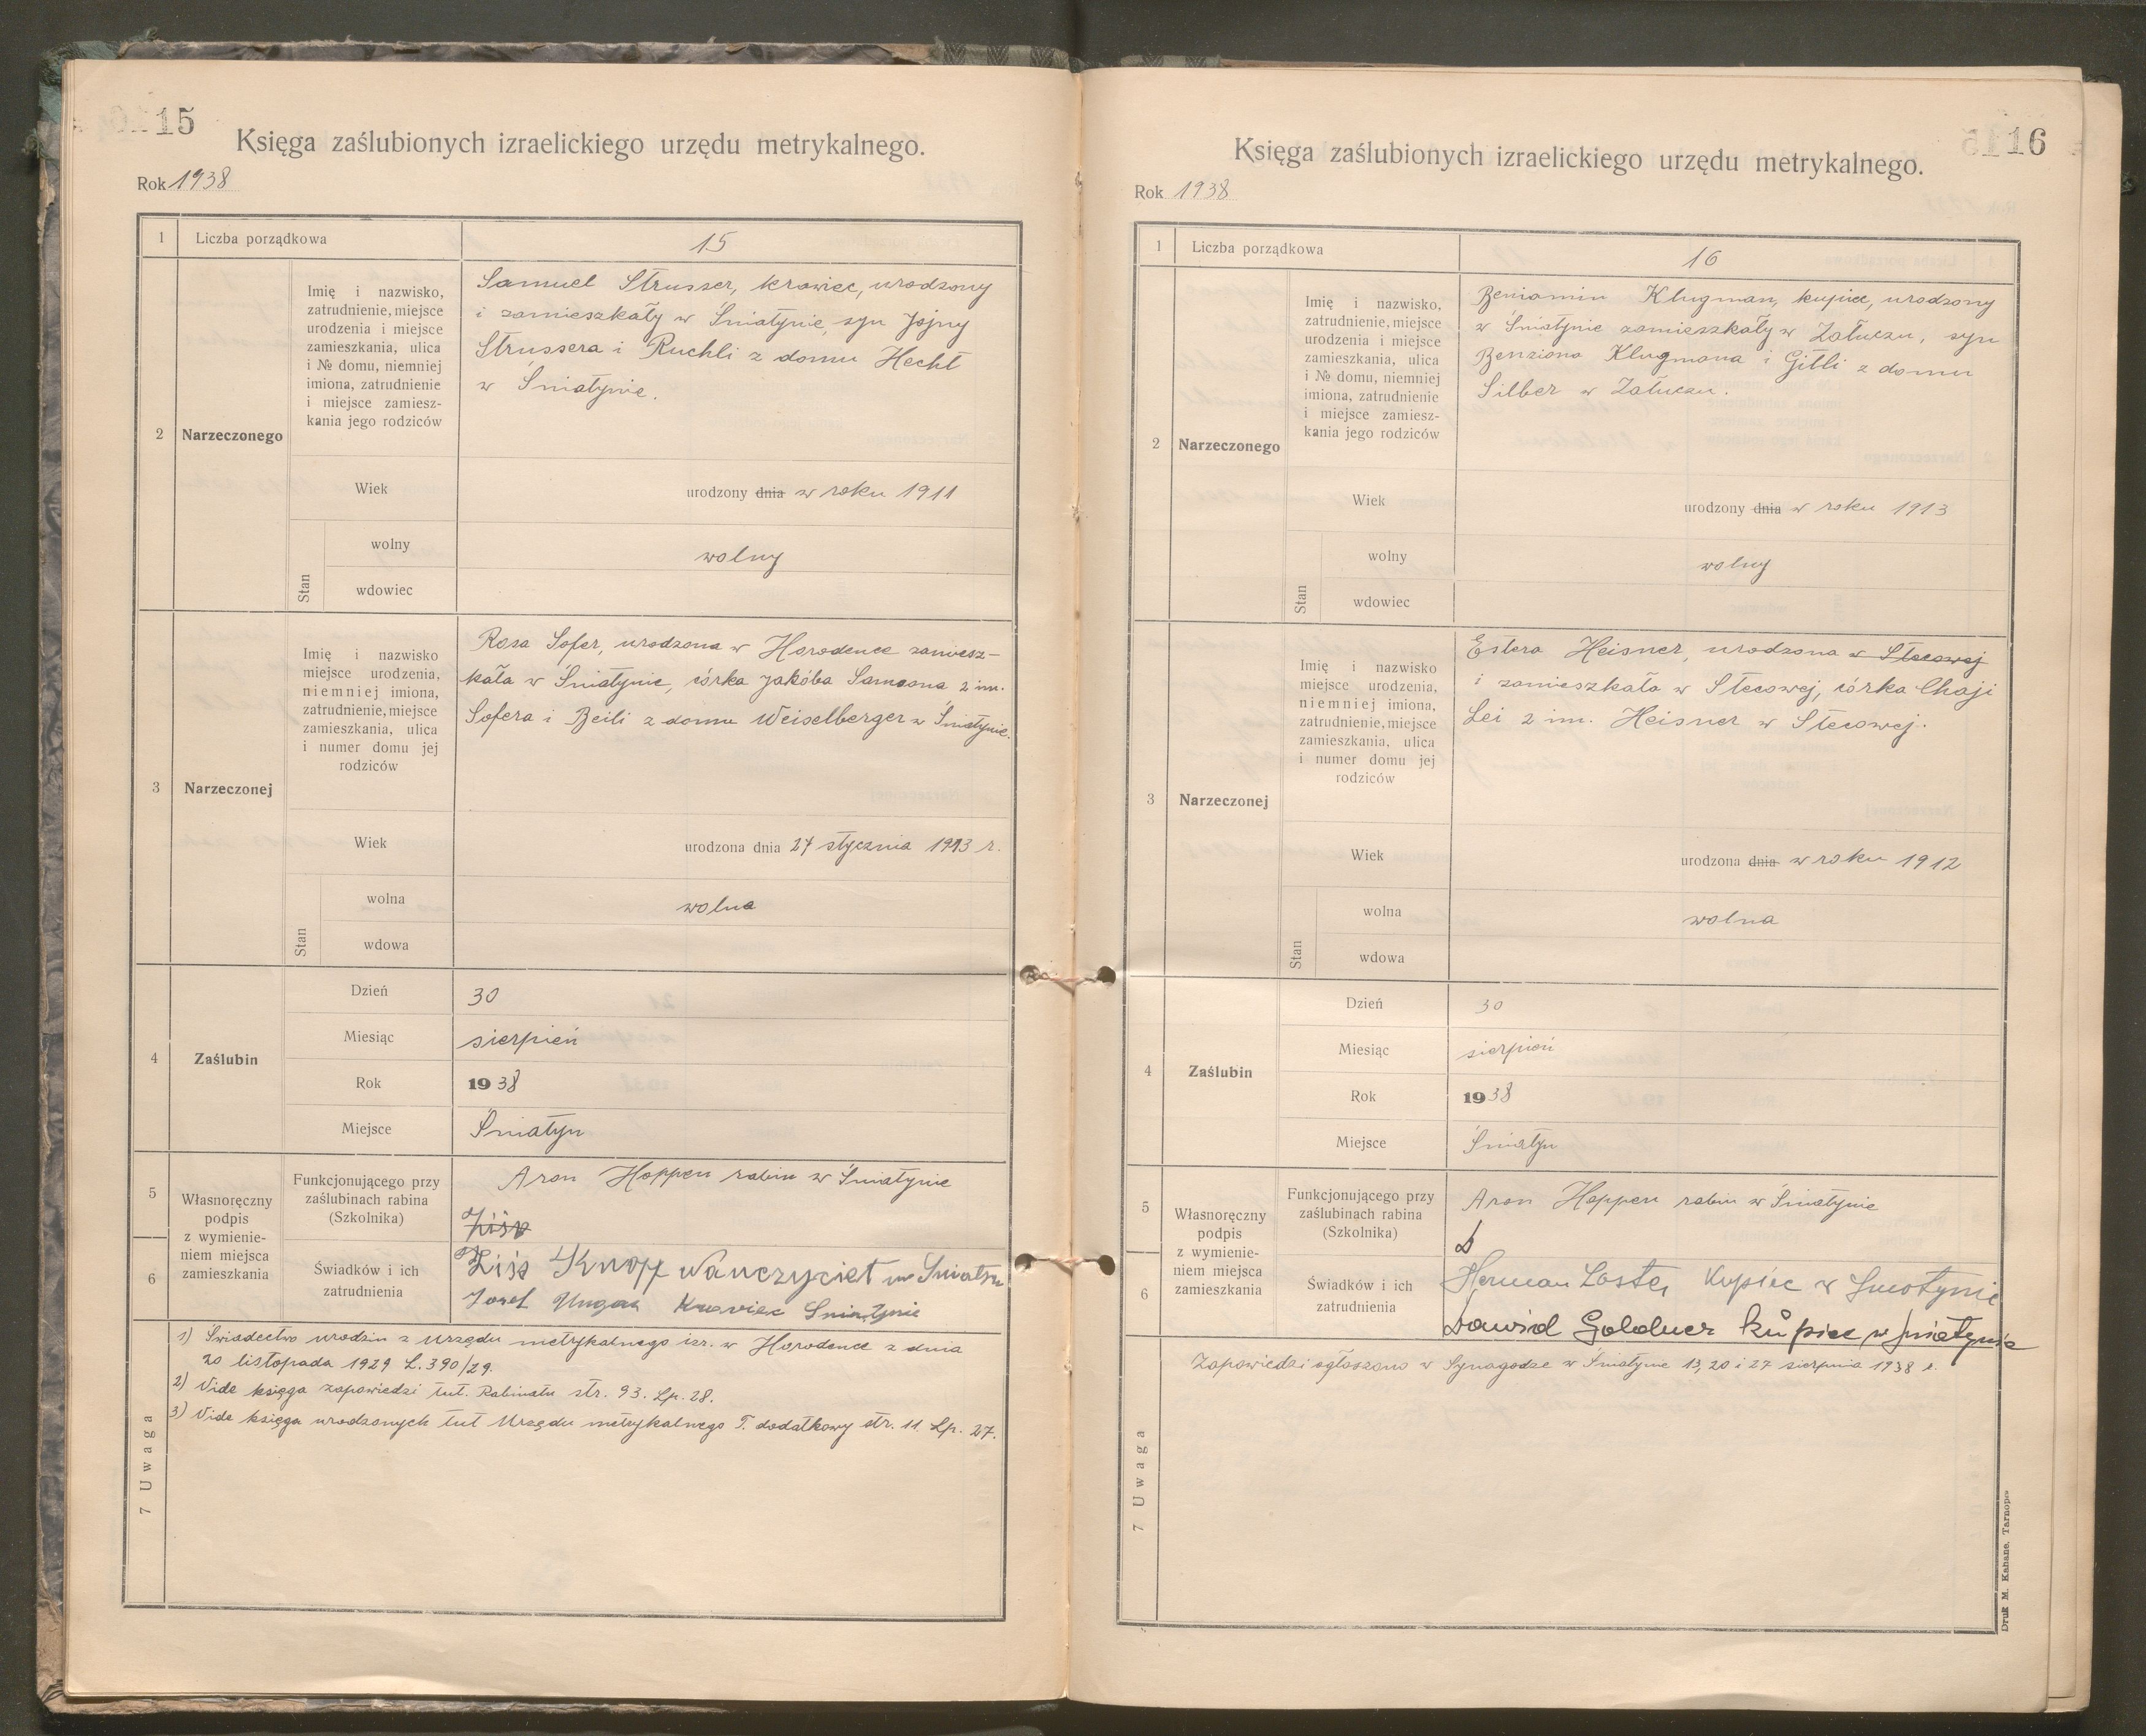 15
Księga zaślubionych izraelickiego urzędu metrykalnego.
Rok 1938
1 Liczba porządkowa 15
2 Narzeczonego
Imię i nazwisko,
zatrudnienie, miejsce
urodzenia i miejsce
zamieszkania, ulica
i № domu, niemniej
imiona, zatrudnienie
i miejsce zamiesz-
kania jego rodziców
Samuel Strusser, krawiec, urodzony
i zamieszkały w Śniatynie, syn Jojny
Strussera i Ruchli z domu Hecht
w Śniatynie.
Wiek urodzony dnia w roku 1911
Stan
wolny wolny
wdowiec
3 Narzeczonej
Imię i nazwisko
miejsce urodzenia,
niemniej imiona,
zatrudnienie, miejsce
zamieszkania, ulica
i numer domu jej
rodziców
Rosa Sofer, urodzona w Horodence zamiesz-
kała w Śniatynie, córka Jakóba Samsona 2 im.
Sofera i Beili z domu Weiselberger w Śniatynie.
Wiek urodzona dnia 27 stycznia 1913 r.
Stan
wolna wolna
wdowa
4 Zaślubin
Dzień 30
Miesiąc sierpień
Rok 1938
Miejsce Śniatyn
5
6
Własnoręczny
podpis
z wymienie-
niem miejsca
zamieszkania
Funkcjonującego przy
zaślubinach rabina
(Szkolnika)
Aron Hoppen rabin w Śniatynie
Świadków i ich
zatrudnienia
Knopf
Josef Ungar Krawiec Śniatynie
7 Uwaga
1) Świadectwo urodzin z Urzędu metrykalnego izr. w Horodence z dnia
20 listopada 1929 L. 390/29.
2) Vide księga zapowiedzi tut. Rabinatu str. 93. Lp. 28.
3) Vide księga urodzonych tut Urzędu metrykalnego T. dodatkowy str. 11. Lp. 27.
16
Księga zaślubionych izraelickiego urzędu metrykalnego.
Rok 1938
1 Liczba porządkowa 16
2 Narzeczonego
Imię i nazwisko,
zatrudnienie, miejsce
urodzenia i miejsce
zamieszkania, ulica
i № domu, niemniej
imiona, zatrudnienie
i miejsce zamiesz-
kania jego rodziców
Beniamin Klugman, kupiec, urodzony
w Śniatynie zamieszkały w Załuczu, syn
Benziona Klugmana i Gitli z domu
Silber w Załuczu.
Wiek urodzony dnia w roku 1913
Stan
wolny wolny
wdowiec
3 Narzeczonej
Imię i nazwisko
miejsce urodzenia,
niemniej imiona,
zatrudnienie, miejsce
zamieszkania, ulica
i numer domu jej
rodziców
Estera Heisner, urodzona w Stecowej
i zamieszkała w Stecowej, córka Chaji
Lei 2 im. Heisner w Stecowej.
Wiek urodzona dnia w roku 1912
Stan
wolna wolna
wdowa
4 Zaślubin
Dzień 30
Miesiąc sierpień
Rok 1938
Miejsce Śniatyn
5
6
Własnoręczny
podpis
z wymienie-
niem miejsca
zamieszkania
Funkcjonującego przy
zaślubinach rabina
(Szkolnika)
Aron Hoppen rabin w Śniatynie
D
Świadków i ich
zatrudnienia
Herman Kupiec w
Dawid Goldner kupiec w Śniatynie
7 Uwaga
Zapowiedzi ogłoszono w Synagodze w Śniatynie 13, 20 i 27 sierpnia 1938 r.
Druk M. Kahane, Tarnopol